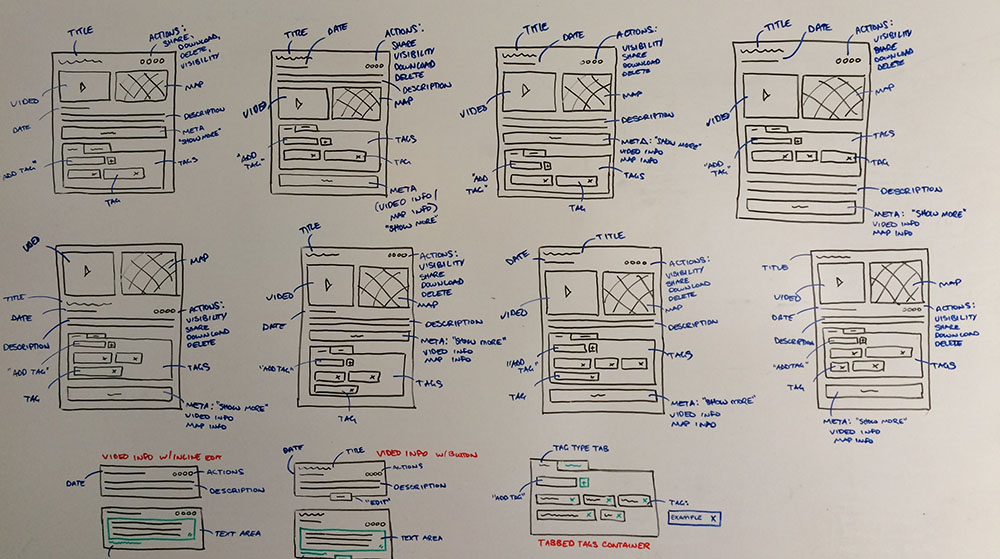 TITLE
ACTIONS:
SHARE,
DOWNLOAD,
DELETE,
VISIBILITY
VIDEO
MAP
DATE
DESCRIPTION
META
"SHOW MORE"
"ADD TAG"
TAGS
TAG
TITLE
DATE
ACTIONS:
SHARE
VISIBILITY
DOWNLOAD
DELETE
DESCRIPTION
VIDEO
MAP
"ADD
TAG"
TAGS
TAG
META
(VIDEO INFO/
MAP INFO)
"SHOW MORE"
TITLE
DATE
ACTIONS:
VISIBILITY
SHARE
DOWNLOAD
DELETE
VIDEO
MAP
DESCRIPTION
META: "SHOW MORE"
VIDEO INFO
MAP INFO
"ADD
TAG"
TAGS
TAG
TITLE
DATE
ACTIONS:
VISIBILITY
SHARE
DOWNLOAD
DELETE
VIDEO
MAP
TAGS
"ADD
TAG"
TAG
DESCRIPTION
META: "SHOW MORE"
VIDEO INFO
MAP INFO
VIDEO
MAP
TITLE
DATE
ACTIONS:
VISIBILITY
SHARE
DOWNLOAD
DELETE
DESCRIPTION
"ADD TAG"
TAGS
TAG
META: "SHOW MORE"
VIDEO INFO
MAP INFO
TITLE
ACTIONS:
VISIBILITY
SHARE
DOWNLOAD
DELETE
VIDEO
MAP
DATE
DESCRIPTION
META: "SHOW MORE"
VIDEO INFO
MAP INFO
"ADD TAG"
TAGS
TAG
TITLE
DATE
ACTIONS:
VISIBILITY
SHARE
DOWNLOAD
DELETE
VIDEO
MAP
DESCRIPTION
"ADD
TAG"
TAGS
TAG
META: "SHOW MORE"
VIDEO INFO
MAP INFO
TITLE
VIDEO
MAP
DATE
ACTIONS:
VISIBILITY
SHARE
DOWNLOAD
DELETE
DESCRIPTION
"ADD TAG"
TAGS
TAG
META: "SHOW MORE"
VIDEO INFO
MAP INFO
VIDEO INFO W/INLINE EDIT
DATE
ACTIONS
DESCRIPTION
TEXT AREA
DATE
TITLE
VIDEO INFO W/BUTTON
ACTIONS
DESCRIPTION
"EDIT"
TEXT AREA
TAG TYPE TAB
"ADD TAG"
TAG:
EXAMPLE X
TABBED TAGS CONTAINER